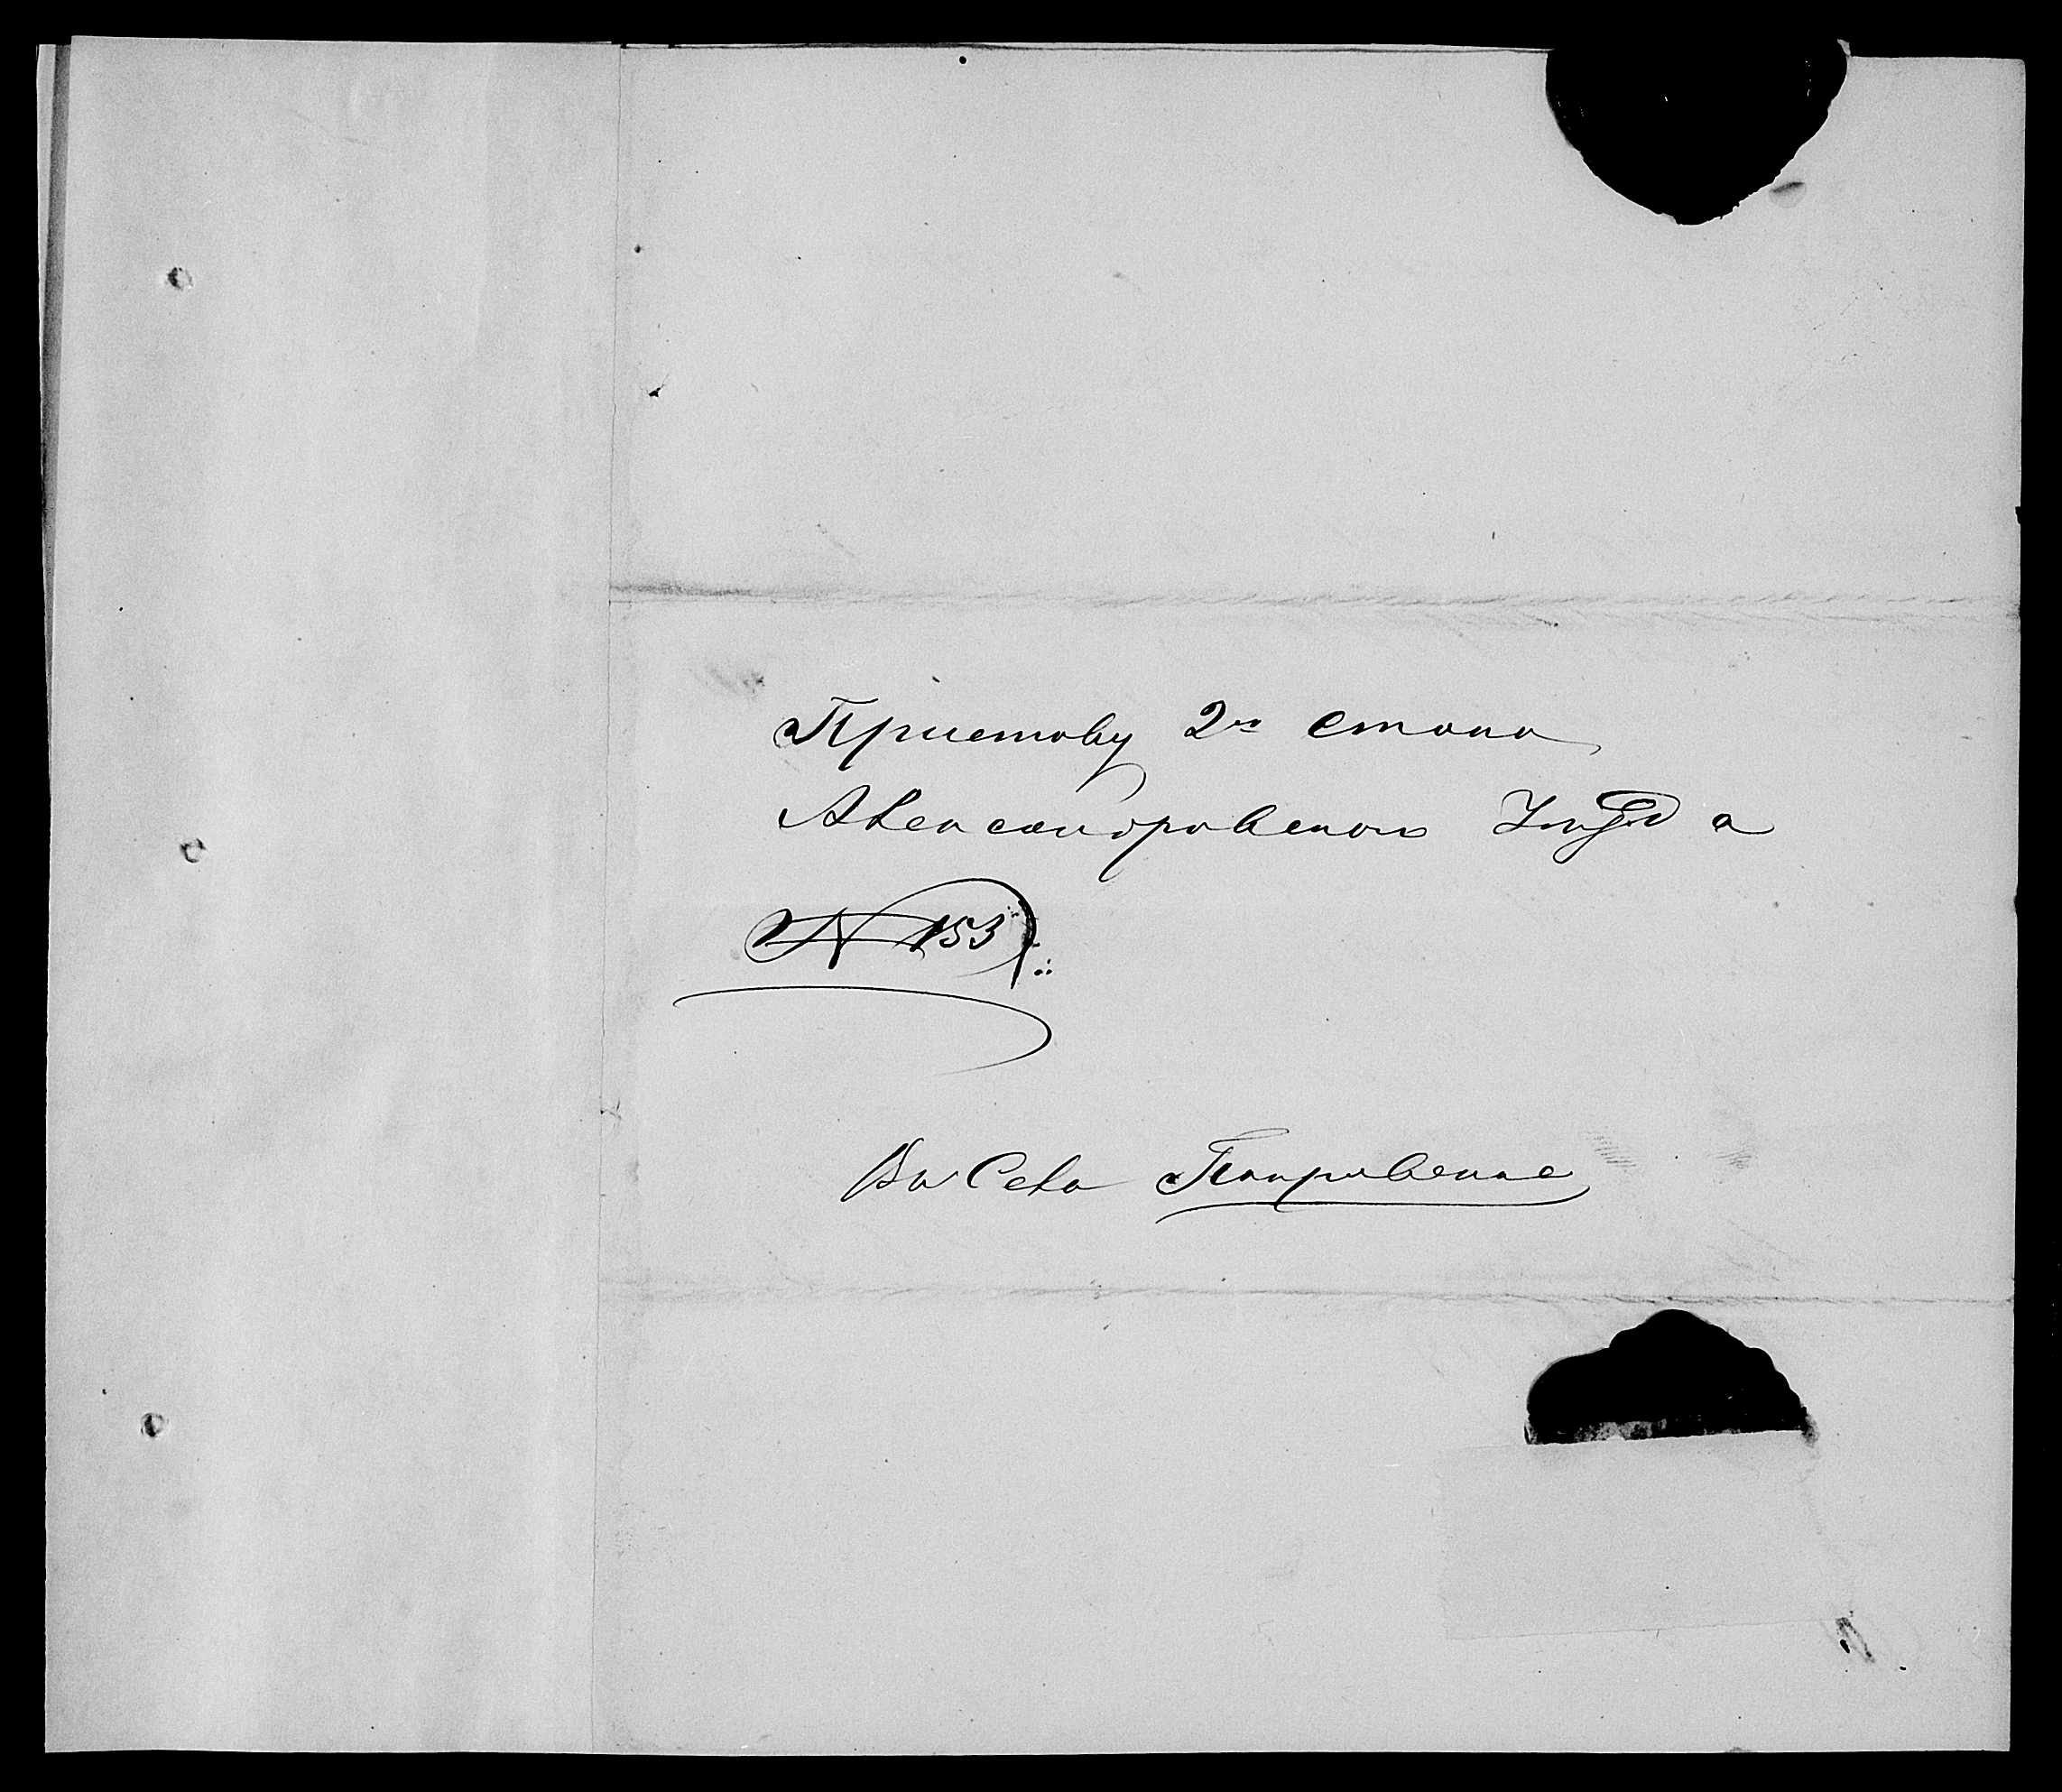 Приставу 2го стана
Александровскаго Уезда
№ 153
Въ Село Покровское